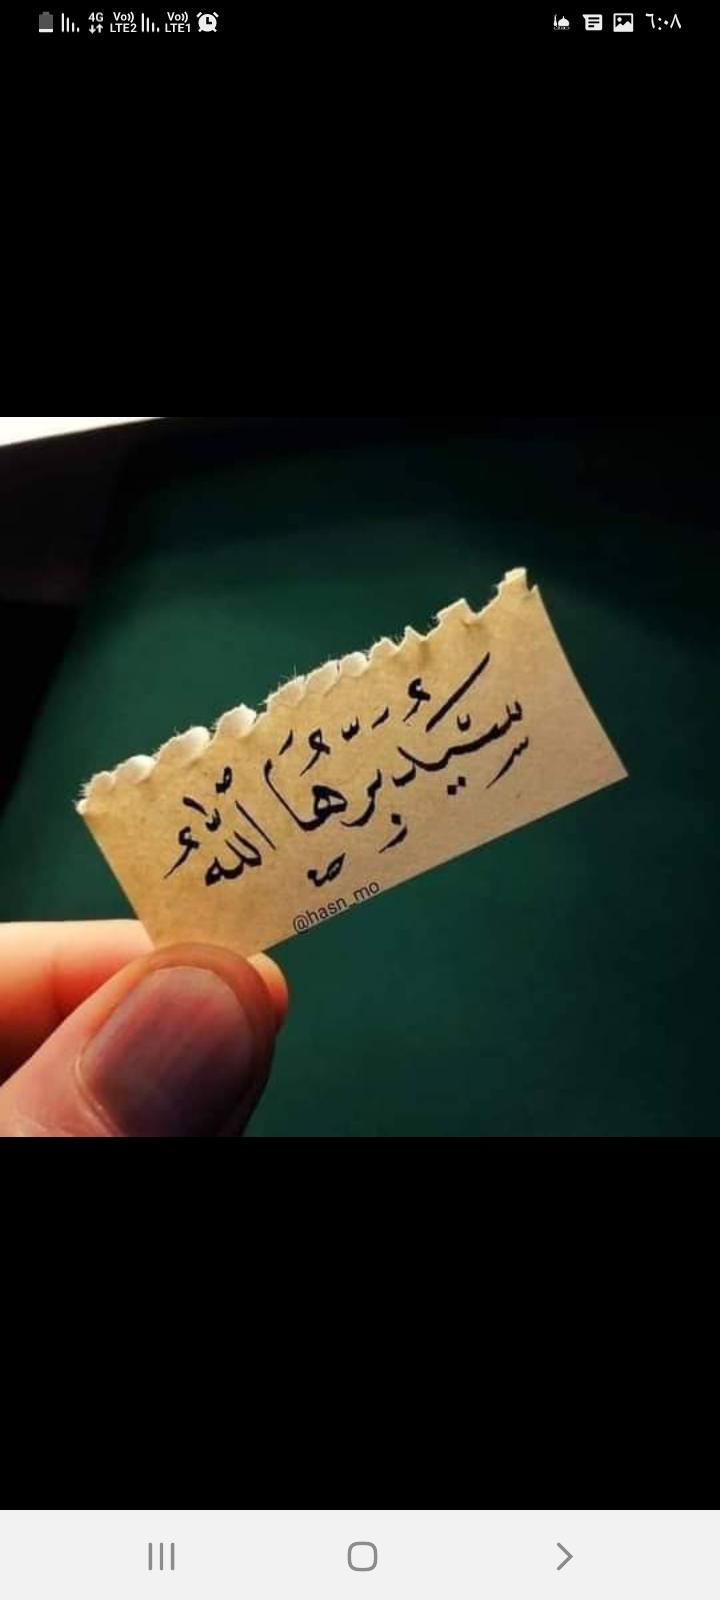 4G VoLTE2 VoLTE1 ٦:٠٨
سَيُدَبِّرُهَا اللّٰهُ
@hasn_mo